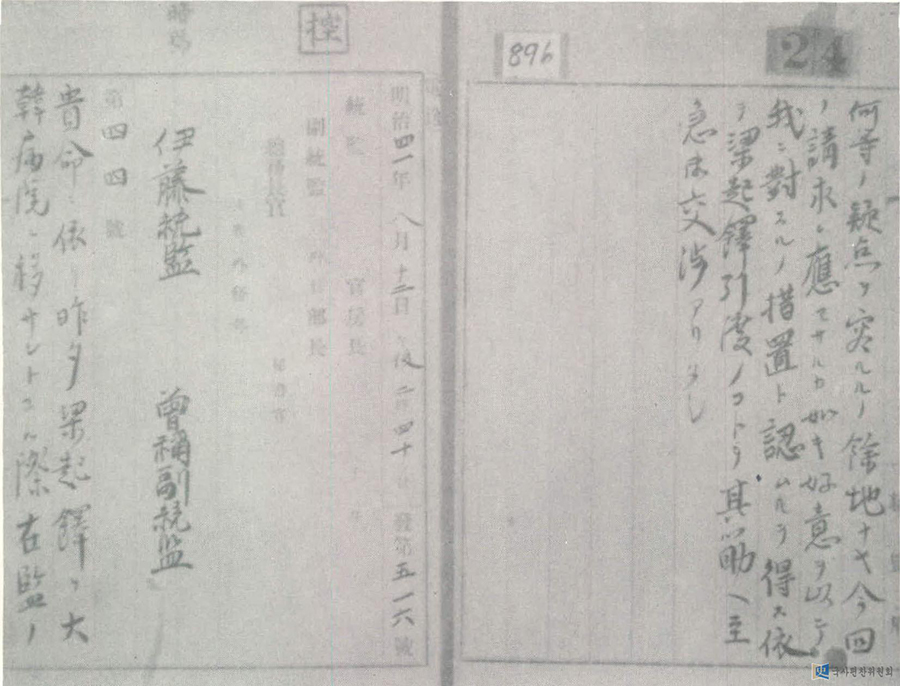 24
896
何等ノ疑点ヲ容ルルノ餘地ナキ今回
ノ請求ニ應セサルカ如キ好意ヲ以テ
我ニ對スルノ措置ト認ムルヲ得ス依
テ梁起鐸引渡ノコトヲ其筋ヘ至
急御交渉アリタシ
控
暗號
明治四一年 八月十二日 午後二時四十分 發第五一六號
統監 官房長
副統監 外務部長
總務長官
伊藤統監 曾禰副統監
第四四號
貴命ニ依リ昨夕梁起鐸ヲ大
韓病院ニ移サントスル際右監ノ
국사편찬위원회